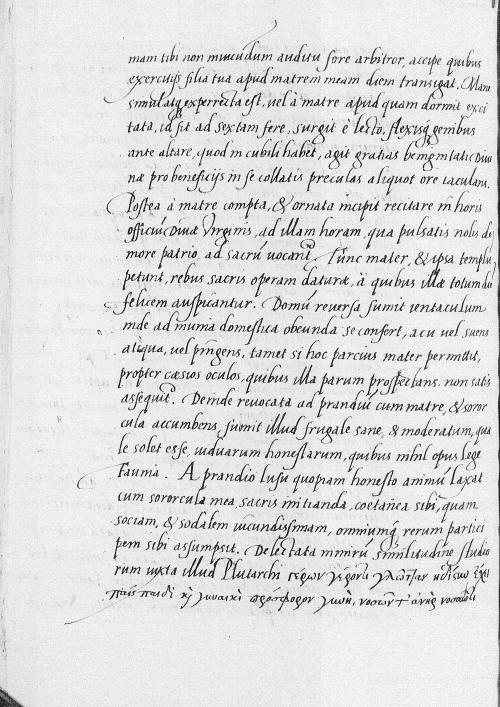 mam tibi non iniucúdum auditu fore arbitror, accipe quibus
exercitijs filia tua apud matrem meam diem transigat. Mane
simulatq; experrecta est, vel à matre apud quam dormit exci
tata, id fit ad sextam fere, surgit è lecto, flexisq; genibus
ante altare, quod in cubili habet, agit gratias benignitati Diui
næ pro beneficijs in se collatis preculas aliquot ore iaculans.
Postea à matre compta, & ornata incipit recitare in horis
officiú diuæ Virginis, ad illam horam, qua pulsatis nolis de
more patrio, ad sacrú uocant. Tunc mater, & ipsa templú
petunt, rebus sacris operam daturæ, à quibus illæ totum diẽ
felicem auspicantur. Domú reversa sumit ientaculum
inde ad munia domestica obeunda se confert, acu vel suens
aliqua, vel pingens, tamet si hoc parcius mater permittit,
propter cæsios oculos, quibus illa parum prospectans non satis
assequit. Deinde revocata ad prandiú cum matre, & soror
cula accumbens, sumit illud frugale sane, & moderatum, qua
le solet esse, viduarum honestarum, quibus nihil opus lege
Fannia. A prandio lusu quopiam honesto animú laxat
cum sororcula mea, sacris initianda, coetanea sibi, quam
sociam, & sodalem iucundissimam, omniumq; rerum partici
pem sibi assumpsit. Delectata nimirú similitudine studio
rum iuxta illud Plutarchi γέρων γέροντι γλῶτταν ἡδίστην ἔχει
παῖς παιδὶ κỳ γυναικὶ πρόσφορον γυνὴ, νοσῶν τ᾽ ἀνὴρ νοσοῦντι